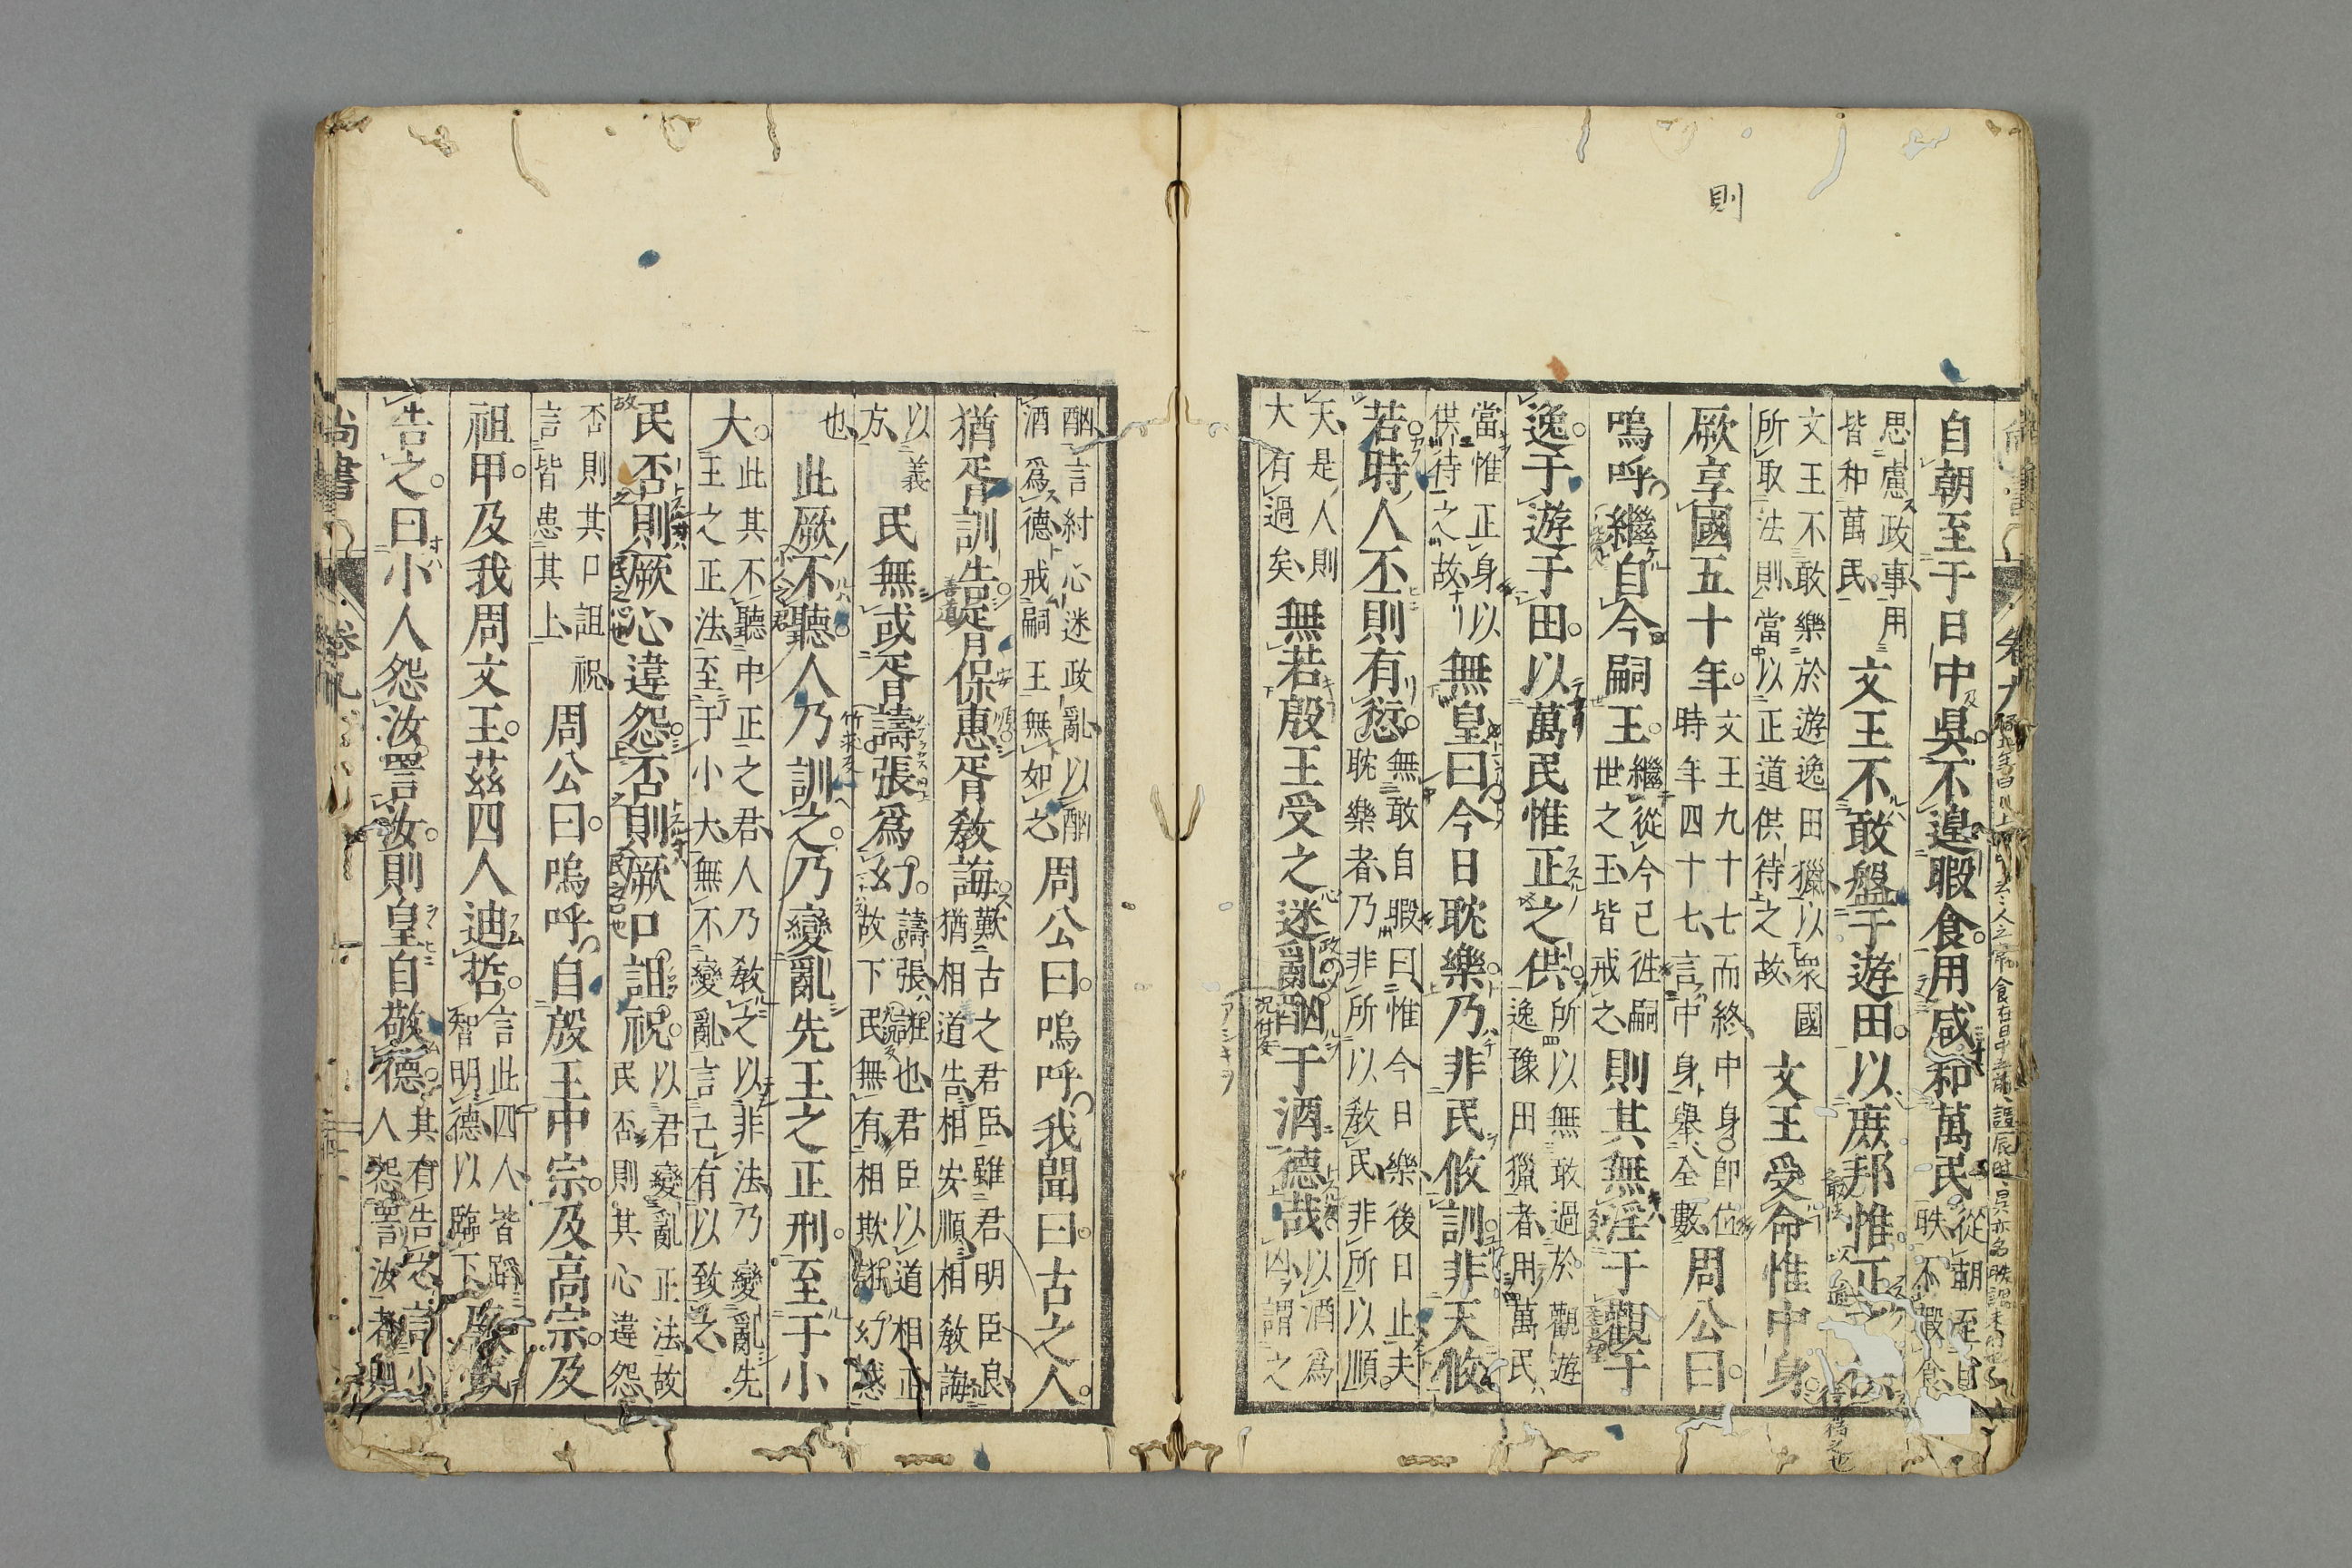 則
自朝至于日中昃不遑暇食用咸和萬民從朝至日昳不暇食
思慮政事用皆和萬民文王不敢盤于遊田以庶邦惟正
文王不敢樂於遊逸田獵以衆國所取法則當以正道供待之故文王受命惟中身
厥享國五十年文王九十七而終中身即位時年四十七言中身舉全數周公曰
嗚呼繼自今嗣王繼從今已徃嗣世之王皆戒之則其無淫于觀于
逸于遊于田以萬民惟正之供所以無敢過於觀遊逸豫田獵者用萬民
當惟正身以供待之故無皇曰今日耽樂乃非民攸訓非天攸
若時人丕則有愆無敢自暇曰惟今日樂後日止夫耽樂者乃非所以教民非所以順
天是人則大有過矣無若殷王受之迷亂酗于酒德哉以酒爲凶謂之
酗言紂心迷政亂以酗酒爲德戒嗣王無如之周公曰嗚呼我聞曰古之人
猶胥訓告胥保惠胥教誨歎古之君臣雖君明臣良猶相道告相安順相教誨
以義方民無或胥譸張爲幻譸張誑也君臣以道相正故下民無有相欺誑幻惑
也此厥不聽人乃訓之乃變亂先王之正刑至于小
大此其不聽中正之君人乃教之以非法乃變亂先王之正法至于小大無不變亂言已有以致之
民否則厥心違怨否則厥口詛祝以君變亂正法故民否則其心違怨
否則其口詛祝言皆患其上周公曰嗚呼自殷王中宗及高宗及
祖甲及我周文王茲四人迪哲言此四人皆蹈智明德以臨下厥或
告之曰小人怨汝詈汝則皇自敬德其有告之言小人怨詈汝者則
尚書
卷九